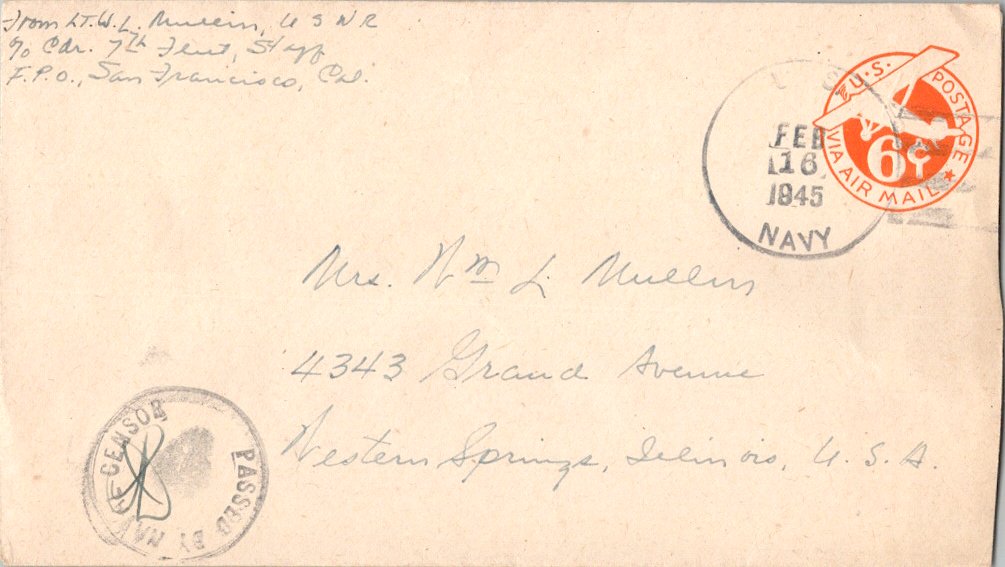 From LT. W. L. Mullin, U S N R
c/o Cdr. 7th Fleet, Staff
F.P.O., San Francisco, Cal.
U.S. POSTAGE
6¢
VIA AIR MAIL
U S
FEB
16
1945
NAVY
Mrs. Wm L. Mullin
4343 Grand Avenue
Western Springs, Illinois, U.S.A.
PASSED BY NAVAL CENSOR